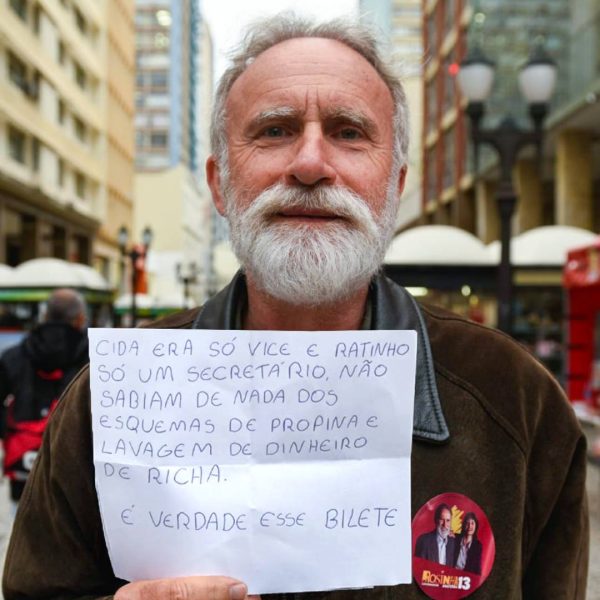 CIDA ERA SÓ VICE E RATINHO
SÓ UM SECRETÁRIO, NÃO
SABIAM DE NADA DOS
ESQUEMAS DE PROPINA E
LAVAGEM DE DINHEIRO
DE RICHA.
É VERDADE ESSE BILETE
13